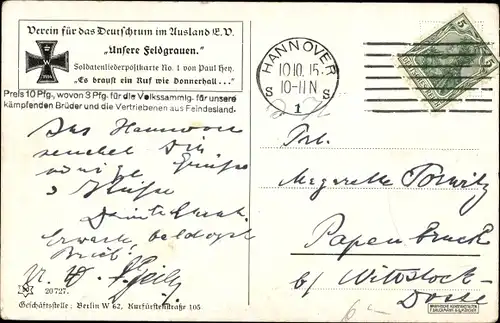 Verein für das Deutschtum im Ausland E.V.
"Unsere Feldgrauen."
Soldatenliederpostkarte No. 1 von Paul Hey.
"Es braust ein Ruf wie Donnerhall..."
1914
Preis 10 Pfg., wovon 3 Pfg. für die Volkssammlg. für unsere
kämpfenden Brüder und die Vertriebenen aus Feindesland.
HANNOVER
10.10.15
10-11 N
S S
1
5 5
Aus Hannover
sendet Dir
innige Grüße
Küsse
Erwarte baldigst
Brief
Frl.
Margarethe
Papenbruck
b/ Wittstock
Dosse
20727.
Geschäftsstelle: Berlin W 62, Kurfürstenstraße 105
6-